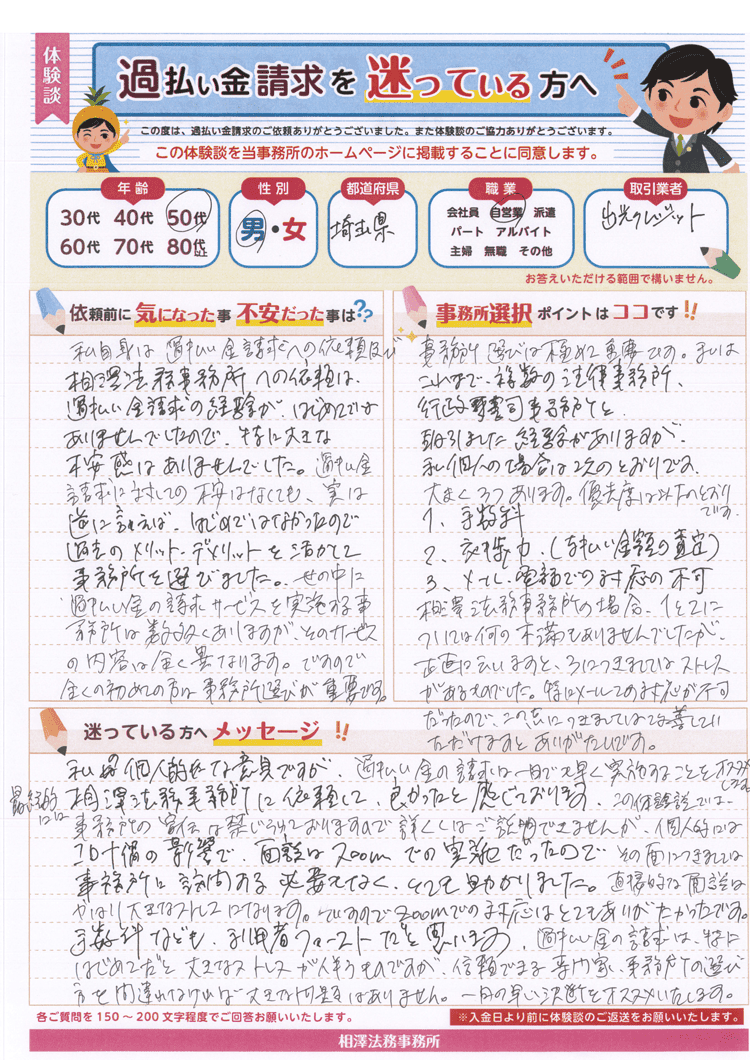 体験談
過払い金請求を迷っている方へ
この度は、過払い金請求のご依頼ありがとうございました。また体験談のご協力ありがとうございます。
この体験談を当事務所のホームページに掲載することに同意します。
年齢
30代 40代 50代
60代 70代 80代以上
性別
男・女
都道府県
埼玉県
職業
会社員 自営業 派遣
パート アルバイト
主婦 無職 その他
取引業者
出光クレジット
お答えいただける範囲で構いません。
依頼前に気になった事 不安だった事は??
私自身は過払い金請求への依頼及び
相澤法務事務所への依頼は、
過払い金請求の経験が、はじめてでは
ありませんでしたので、特に大きな
不安感はありませんでした。過払金
請求に対しての不安はなくても、実は
逆に言えば、はじめてではなかったので
過去のメリット・デメリットを活かして
事務所を選びました。世の中に
過払い金の請求サービスを実施する事
務所は数多くありますが、そのサービス
の内容は全く異なります。ですので
全くの初めての方は事務所選びが重要です。
事務所選択ポイントはココです!!
事務所選びは極めて重要です。私は
これまで、複数の法律事務所、
行政書司事務所と
取引しました経験がありますが、
私個人の場合は次のとおりです。
大きく3つあります。優先度は以下のとおり
です。
1、手数料
2、交渉力、(過払い金額の査定)
3、メール、電話での対応の不可
相澤法務事務所の場合、1と2に
ついては何の不満もありませんでしたが、
正直に言いますと、3につきましてはストレス
があるものでした。特にメールでの対応が不可
だったので、この点につきましては改善してい
ただけますとありがたいです。
迷っている方へメッセージ!!
私個人的な意見ですが、過払い金の請求は一日でも早く実施することをオススメ
します。
最終的
には
相澤法務事務所に依頼して、良かったと感じております。この体験談では、
事務所の宣伝は禁じられておりますので詳しくはご説明できませんが、個人的には
コロナ禍の影響で、面談はzoomでの実施だったのでその面につきましては
事務所に訪問する必要もなく、とても助かりました。直接的な面談は
やはり大きなストレスになります。ですのでzoomでの対応はとてもありがたかったです。
手数料なども、利用者ファーストだと思います。過払い金の請求は、特に
はじめてだと大きなストレスが伴うものですが、信頼できる専門家、事務所の選び
方を間違わなければ大きな問題はありません。一日の早い決断をオススメいたします。
各ご質問を150～200文字程度でご回答お願いいたします。
※入金日より前に体験談のご返送をお願いいたします。
相澤法務事務所